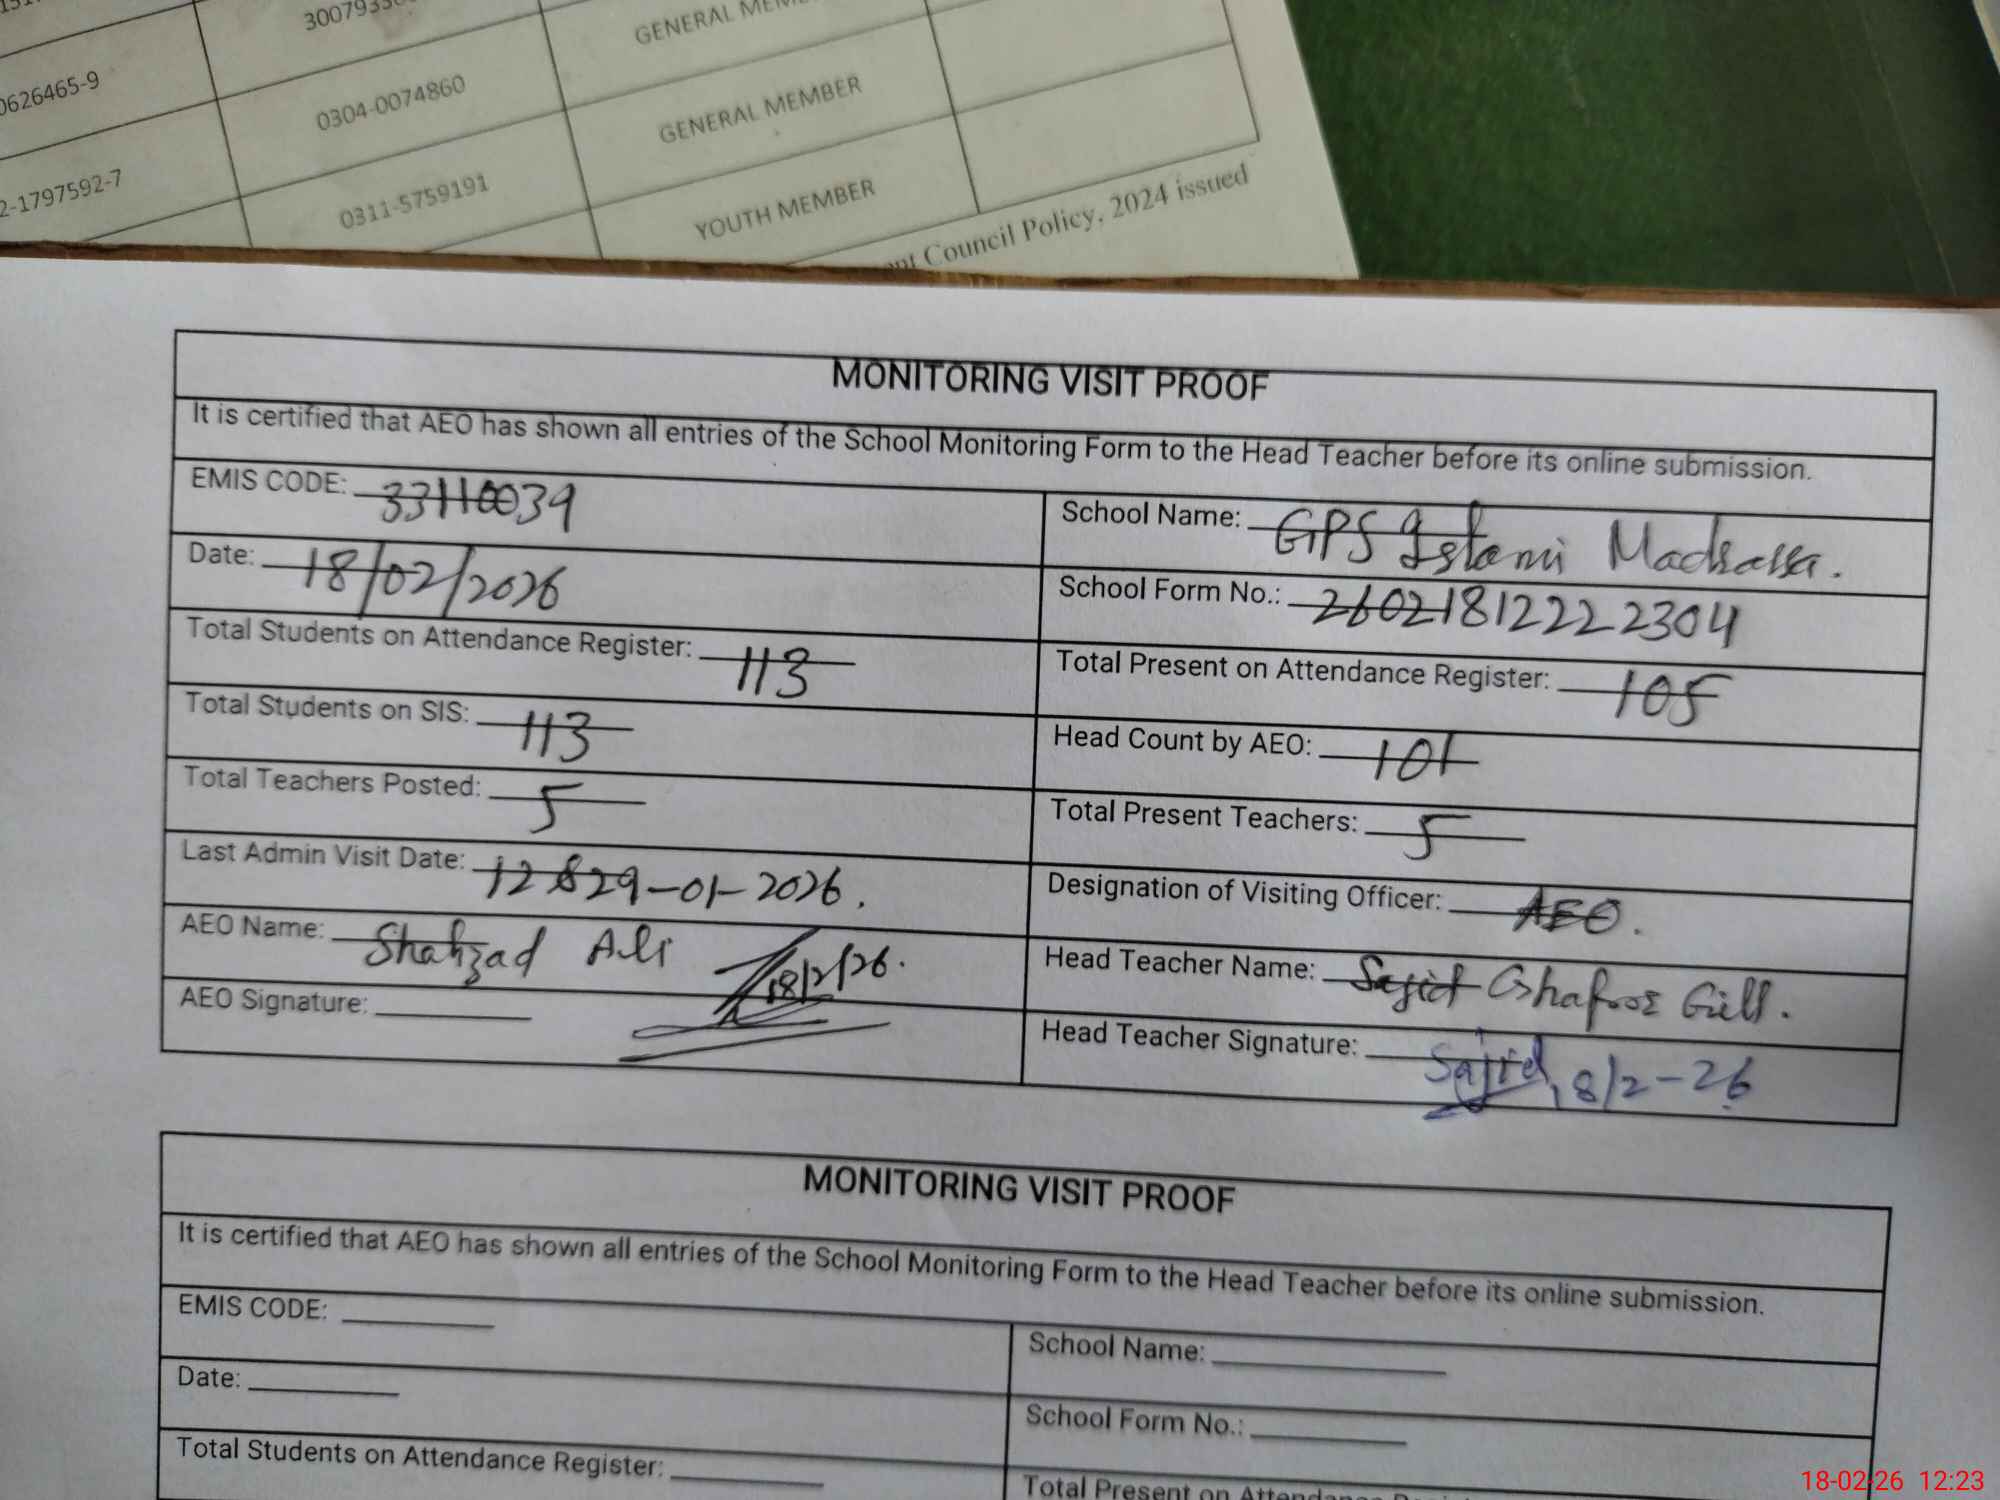 0626465-9 0304-0074860 GENERAL MEMBER
2-1797592-7 0311-5759191 GENERAL MEMBER
YOUTH MEMBER
Council Policy, 2024 issued
MONITORING VISIT PROOF
It is certified that AEO has shown all entries of the School Monitoring Form to the Head Teacher before its online submission.
EMIS CODE: 33110039
School Name: GPS Islami Madrassa.
Date: 18/02/2026
School Form No.: 260218122222304
Total Students on Attendance Register: 113
Total Present on Attendance Register: 105
Total Students on SIS: 113
Head Count by AEO: 101
Total Teachers Posted: 5
Total Present Teachers: 5
Last Admin Visit Date: 29-01-2026.
Designation of Visiting Officer: AEO.
AEO Name: Shahzad Ali
Head Teacher Name: Sajid Ghafoor Gill.
AEO Signature: 18/2/26.
Head Teacher Signature: Sajid 18/2-26
MONITORING VISIT PROOF
It is certified that AEO has shown all entries of the School Monitoring Form to the Head Teacher before its online submission.
EMIS CODE:
School Name:
Date:
School Form No.:
Total Students on Attendance Register:
Total Present on
18-02-26 12:23